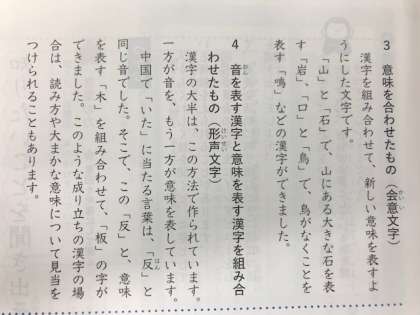 3 意味を合わせたもの（会意文字）
漢字を組み合わせて、新しい意味を表すよ
うにした文字です。
「山」と「石」で、山にある大きな石を表
す「岩」、「口」と「鳥」で、鳥がなくことを
表す「鳴」などの漢字ができました。
4 音を表す漢字と意味を表す漢字を組み合
わせたもの（形声文字）
漢字の大半は、この方法で作られています。
一方が音を、もう一方が意味を表しています。
中国で「いた」に当たる言葉は、「反」と
同じ音でした。そこで、この「反」と、意味
を表す「木」を組み合わせて、「板」の字が
できました。このような成り立ちの漢字の場
合は、読み方や大まかな意味について見当を
つけられることもあります。